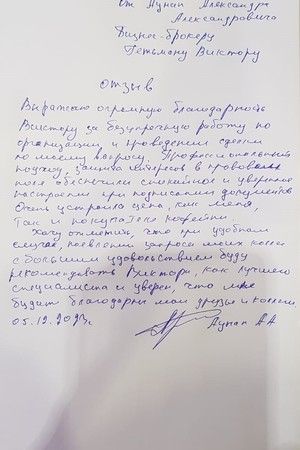 От Лунап Александра
Александровича
Бизнес-брокеру
Гетьману Виктору
отзыв
Выражаю огромную благодарность
Виктору за безупречную работу по
организации и проведении сделки
по моему вопросу. Профессиональный
подход, защита интересов в
поля обеспечили спокойное и уверенное
настроение при подписании документов
Очень устроила цена, как меня
так и покупателя кофейни.
Хочу отметить, что при удобном
случае, появлении запроса моих коллег
с большим удовольствием буду
рекомендовать Виктора, как лучшего
специалиста и уверен, что мне
будут благодарны мои друзья и коллеги.
05.12.2023г. Лунап АА